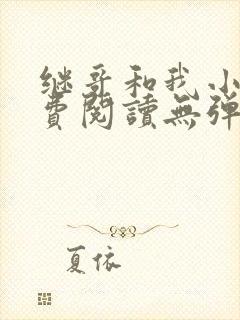 继哥和我小
费阅讀無弹
夏依